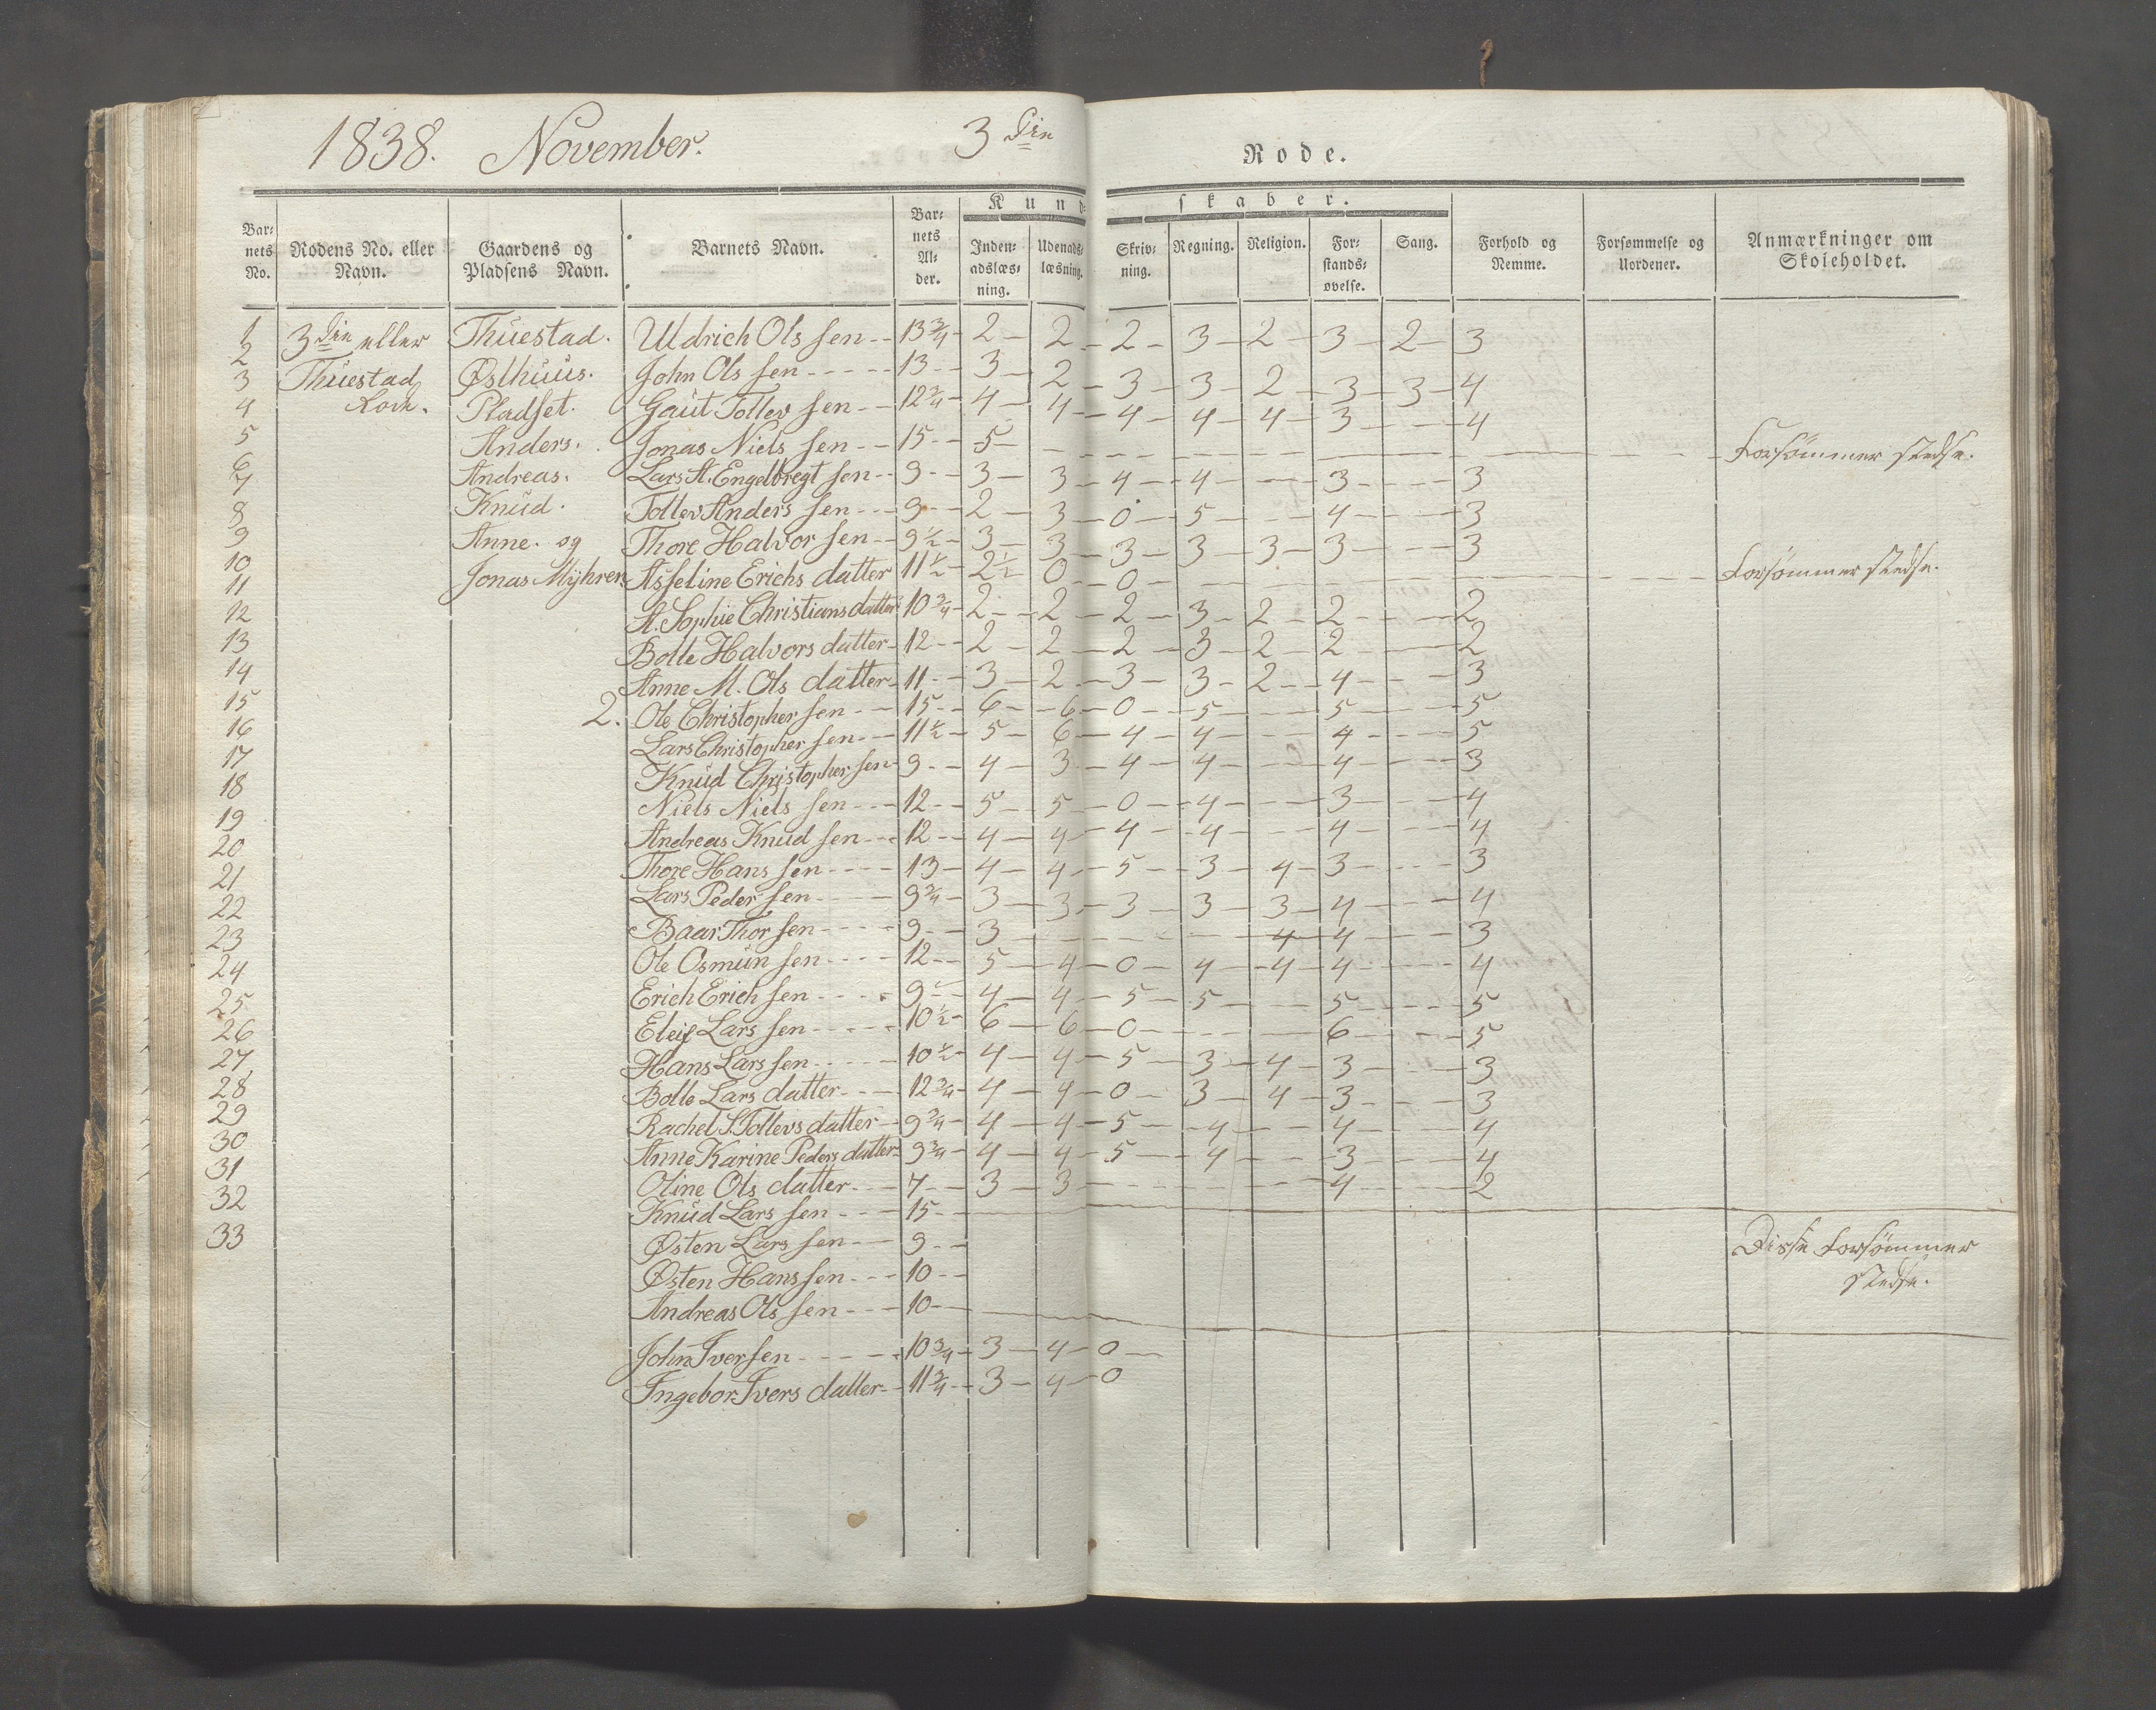 1838. November. 3die Rode.
Kundskaber.
Barnets No. | Rodens No. eller Navn. | Gaardens og Pladsens Navn. | Barnets Navn. | Barnets Alder. | Indenadslæsning. | Udenadslæsning. | Skrivning. | Regning. | Religion. | Forstandsøvelse. | Sang. | Forhold og Nemme. | Forsømmelse og Uordener. | Anmærkninger om Skoleholdet.
1 3die eller Thuestad. Uldrich Olssen 13 3/4 2 2 2 3 2 3 2 3
2 Thuestad Østhuus. John Olssen 13 3 2 3 3 2 3 3 4
3 Rode. Pladset. Gaut Tollevsen 12 3/4 4 4 4 4 4 3 4
4 Anders. Jonas Nielssen 15 5 Forsømmer stedse.
5 Andreas. Lars A. Engelbregtsen 9 3 3 4 4 3 3
6 Knud. Tollev Anderssen 9 2 3 0 5 4 3
7 Anne. og Thore Halvorsen 9 1/2 3 3 3 3 3 3 3
8 Jonas Myhren Asseline Erichsdatter 11 1/2 2 1/2 0 0 Forsømmer stedse.
9 A. Sophie Christiansdatter 10 3/4 2 2 2 3 2 2 2
10 Bolle Halvorsdatter 12 2 2 2 3 2 2 2
11 Anne M. Olsdatter 11 3 2 3 3 2 4 3
12 2. Ole Christophersen 15 6 6 0 5 5 5
13 Lars Christophersen 11 1/2 5 6 4 4 4 5
14 Knud Christophersen 9 4 3 4 4 4 3
15 Niels Nielssen 12 5 5 0 4 3 4
16 Andreas Knudsen 12 4 4 4 4 4 4
17 Thore Hanssen 13 4 4 5 3 4 3 3
18 Lars Pedersen 9 3/4 3 3 3 3 3 4 4
19 Baar Thorsen 9 3 4 4 3
20 Ole Osmunsen 12 5 4 0 4 4 4 4
21 Erich Erichsen 9 4 4 5 5 5 5
22 Eleif Larssen 10 1/2 6 6 0 6 5
23 Hans Larssen 10 1/2 4 4 5 3 4 3 3
24 Bolle Larsdatter 12 3/4 4 4 0 3 4 3 3
25 Rachel S. Tollevsdatter 9 3/4 4 4 5 4 4 4
26 Anne Karine Pedersdatter 9 3/4 4 4 5 4 3 4
27 Oline Olsdatter 7 3 3 4 2
28 Knud Larssen 15
29 Østen Larssen 9 Disse forsømmer
30 Østen Hanssen 10 stedse.
31 Andreas Olssen 10
32 John Iversen 10 3/4 3 4 0
33 Ingebor Iversdatter 11 3/4 3 4 0